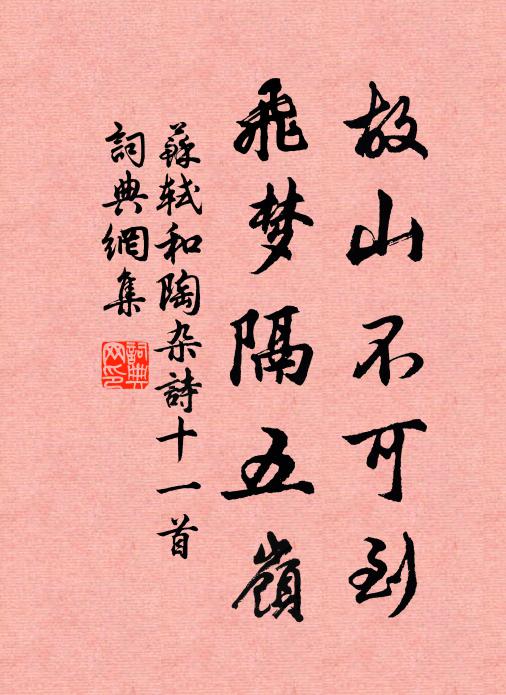 故山不可到
飛梦隔五嶺
蘇轼和陶杂詩十一首
詞典網集
詞典
网印